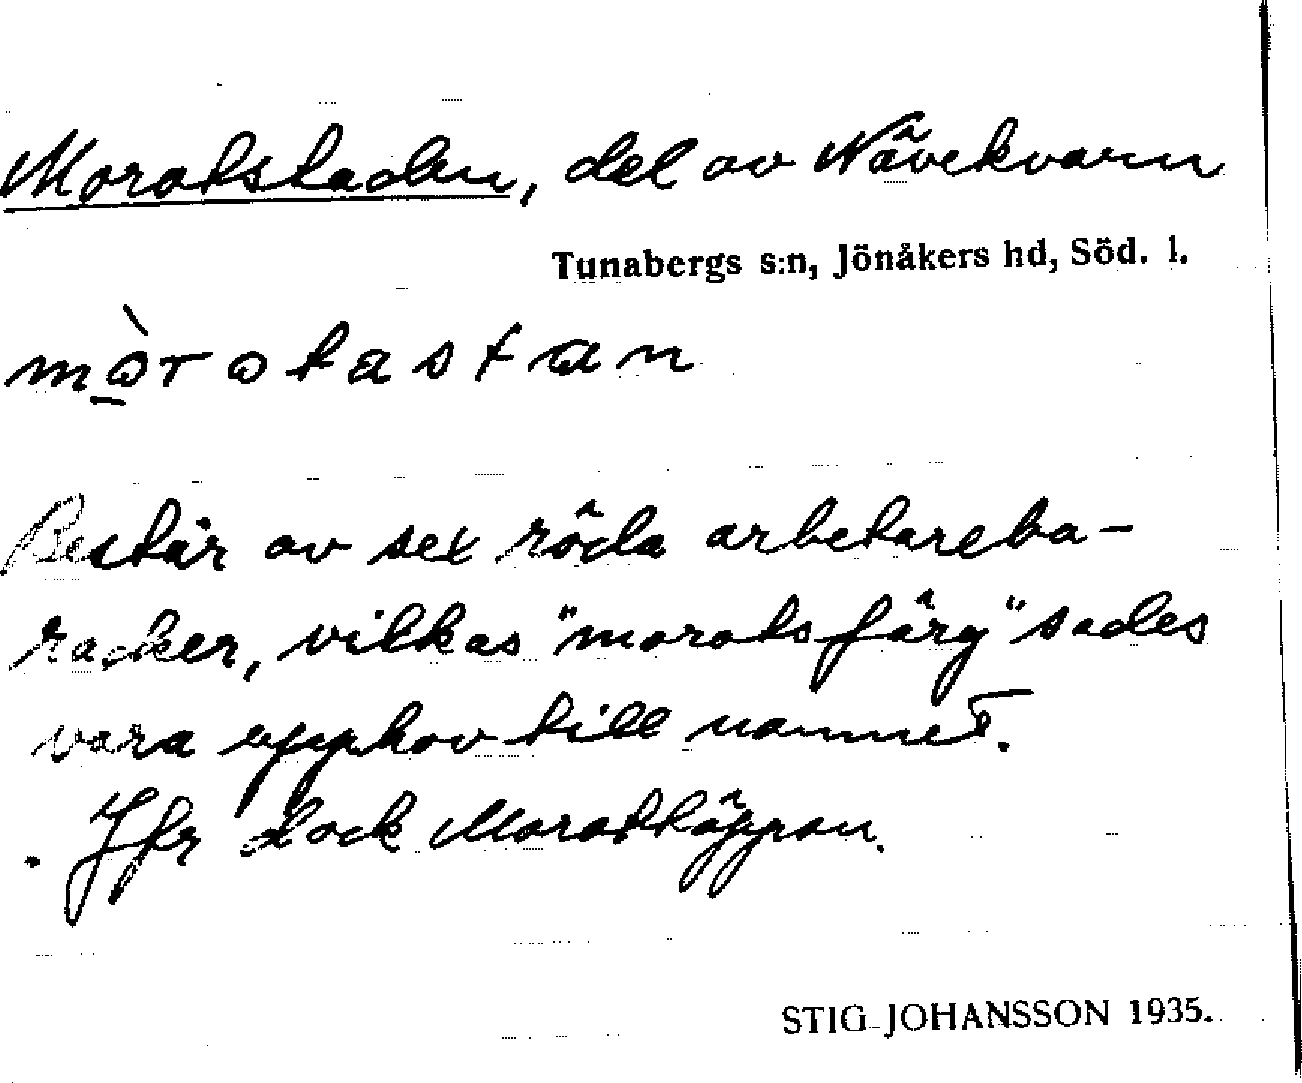 Morotstaden, del av Nävekvarn
Tunabergs s:n, Jönåkers hd, Söd. l.
mòrotastan
Består av sex röda arbetareba-
racker, vilkas "morotsfärg" sades
vara upphov till namnet.
Jfr dock Morottäppan.
STIG JOHANSSON 1935.